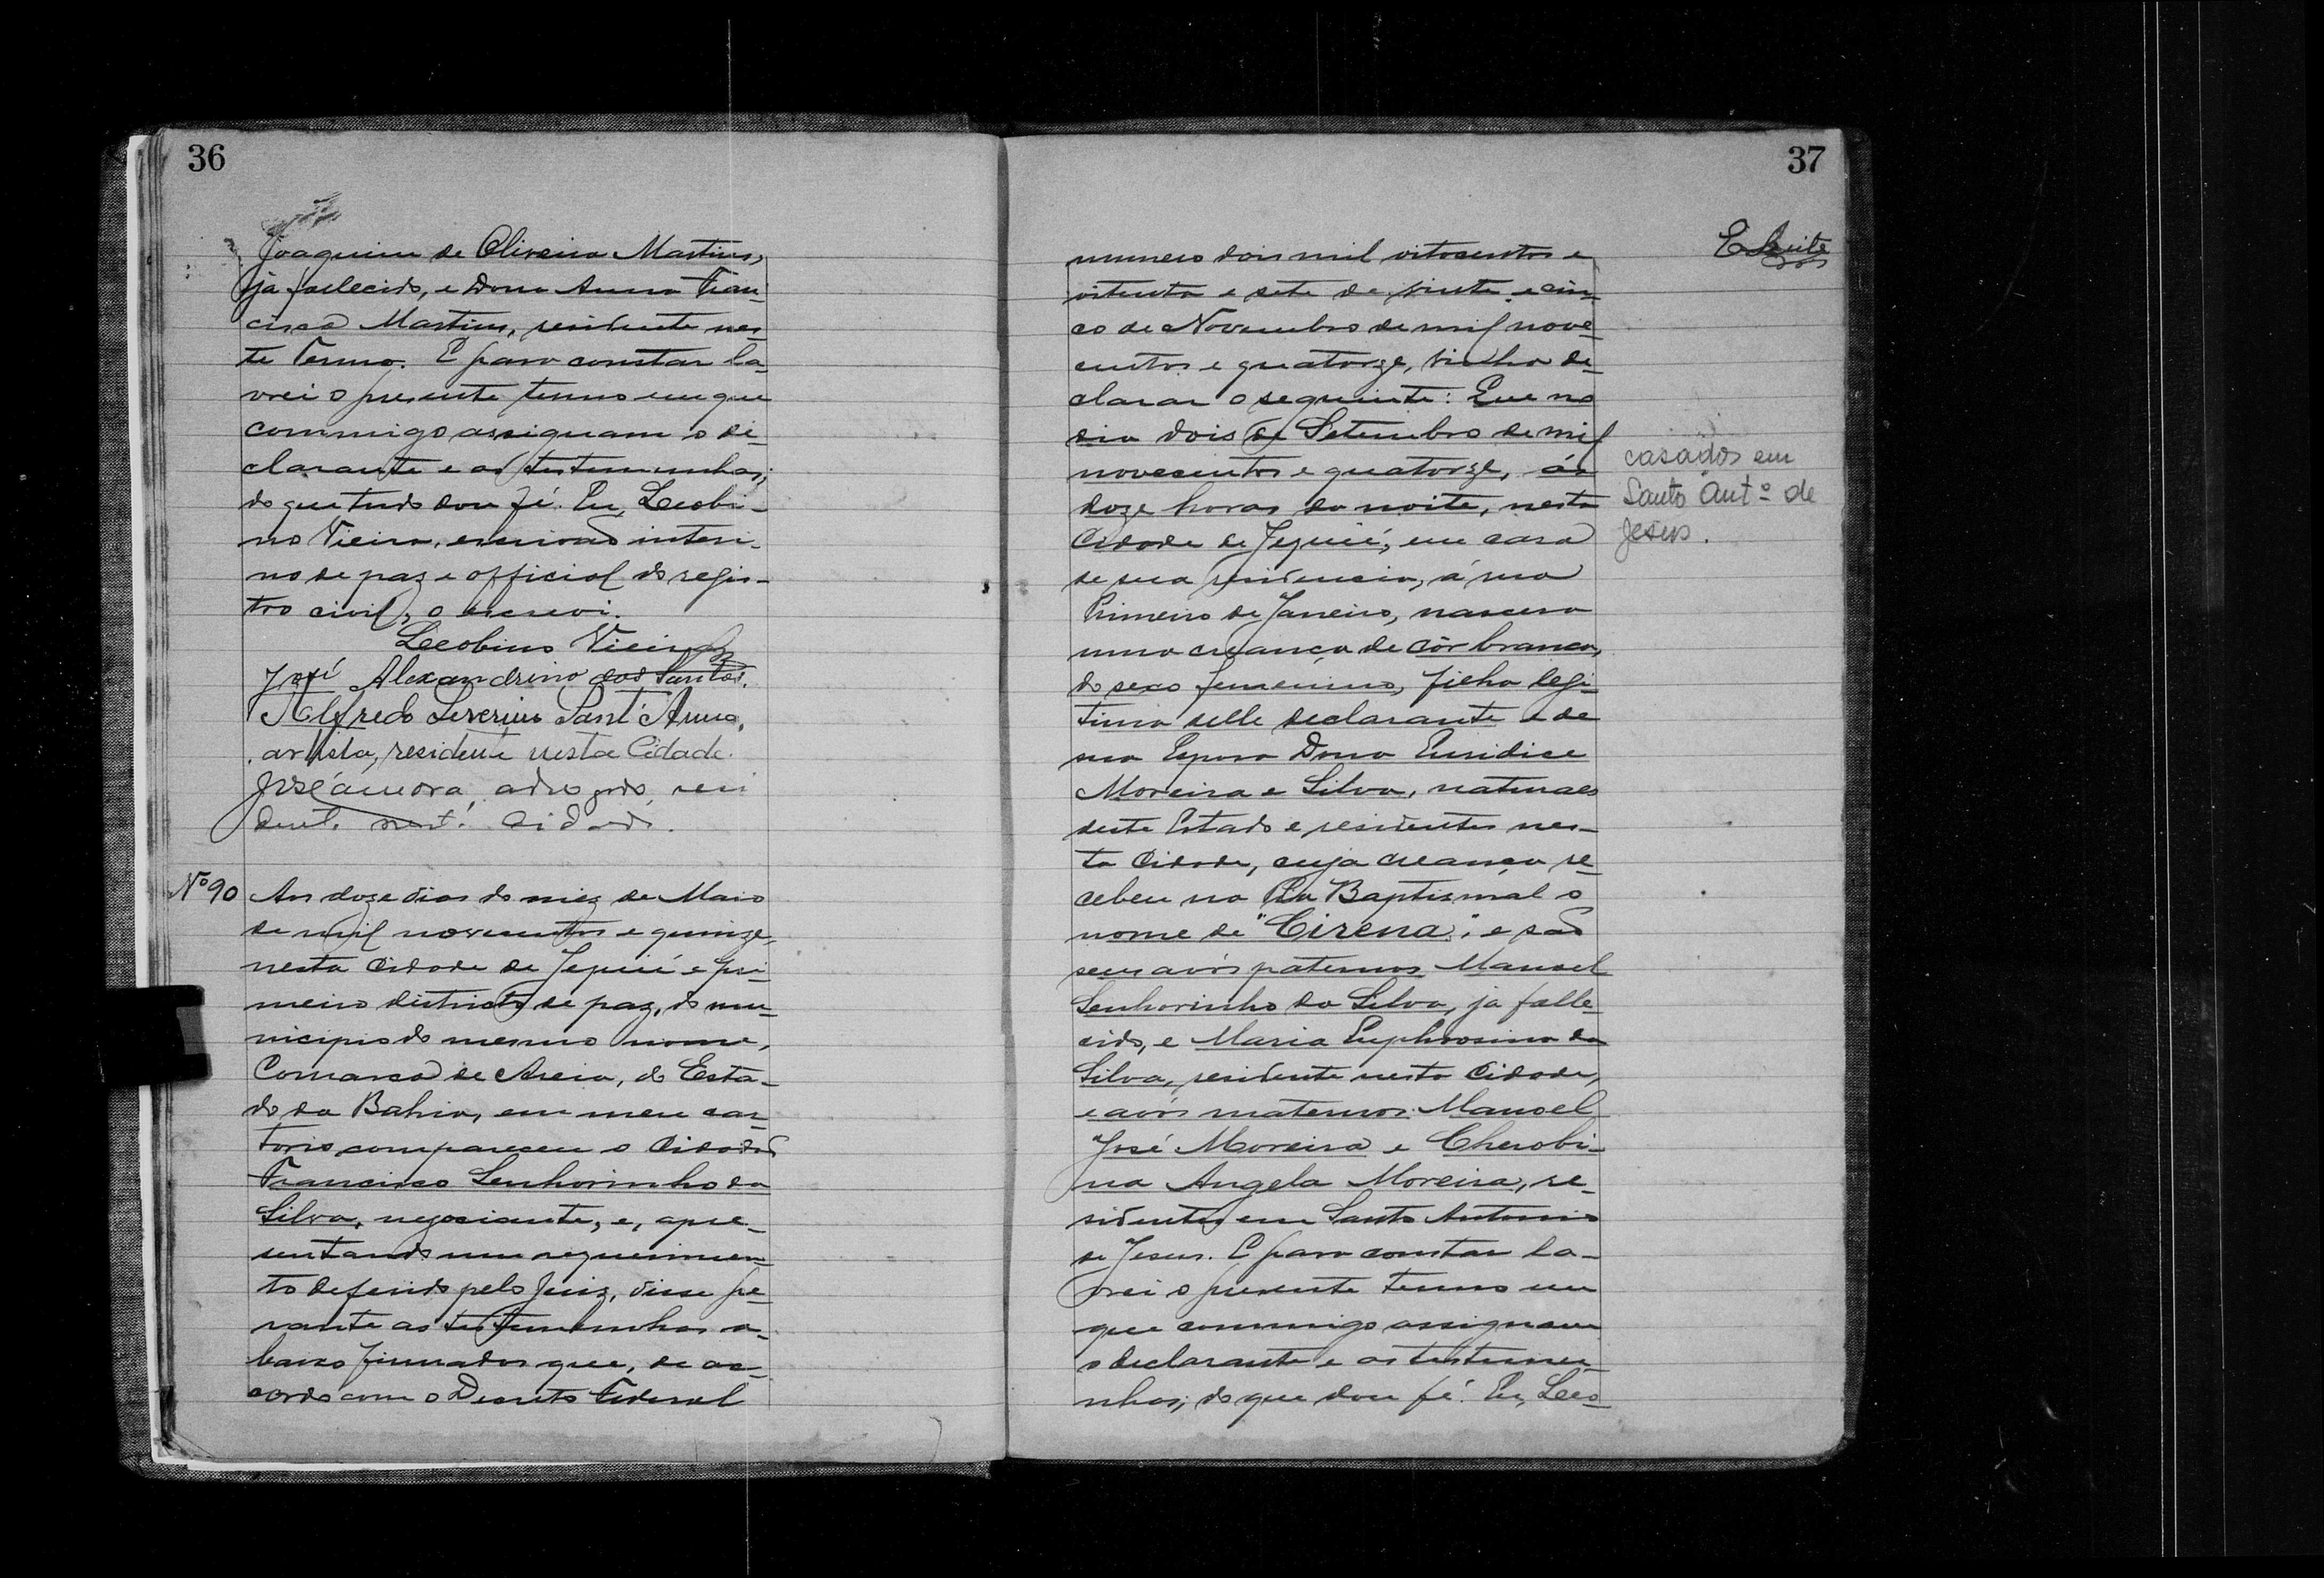 36
Joaquim de Oliveira Martins,
já faelecido, e Dona Anna Fran-
cisca Martins, residente nes-
te Termo. E para constar la-
vrei o presente termo em que
commigo assignam o de-
clarante e as testemunhas;
do que tudo dou fé. Eu, Leobi-
no Vieira, escrivão interi-
no de paz e official do regis-
tro civil, o escrevi.
Leobino Vieira
José Alexandrino dos Santos.
Alfredo Severino Sant'Anna,
artista, residente nesta Cidade.
José advogado, resi
dente nest. Cidade.
Nº 90 Aos doze dias do mez de Maio
de mil novecentos e quinze,
nesta Cidade de Jequié e pri-
meiro districto de paz, do mu-
nicipio do mesmo nome,
Comarca de Areia, do Esta-
do da Bahia, em meu car-
torio compareceu o Cidadão
Francisco Senhorinho da
Silva, negociante, e, apre-
sentando um requerimen-
to deferido pelo Juiz, disse pe-
rante as testemunhas a-
baixo firmadas que, de ac-
cordo com o Decreto Federal
37
E Leite
numero dois mil oitocentos e
oitenta e sete de vinte e cin-
co de Novembro de mil nove-
centos e quatorze, vinha de-
clarar o seguinte: Que no
dia dois de Setembro de mil
novecentos e quatorze, ás
doze horas da noite, nesta
Cidade de Jequié, em casa
de sua residencia, á rua
Primeiro de Janeiro, nascera
uma creança de côr branca,
do sexo femenino, filha legi-
tima delle declarante e de
sua Esposa Dona Euridice
Moreira e Silva, naturaes
deste Estado e residentes nes-
ta Cidade, cuja creança re-
cebeu na Pia Baptismal o
nome de "Cirena"; e são
seus avós paternos Manoel
Senhorinho da Silva, já falle-
cido, e Maria Euphrosina da
Silva, residente nesta Cidade,
e avós maternos: Manoel
José Moreira e Cherobi-
na Angela Moreira, re-
sidentes em Santo Antonio
de Jesus. E para constar la-
vrei o presente termo em
que commigo assignam
o declarante e as testemu-
nhas; do que dou fé. Eu, Leo-
casados em
Santo Antº de
Jesus.